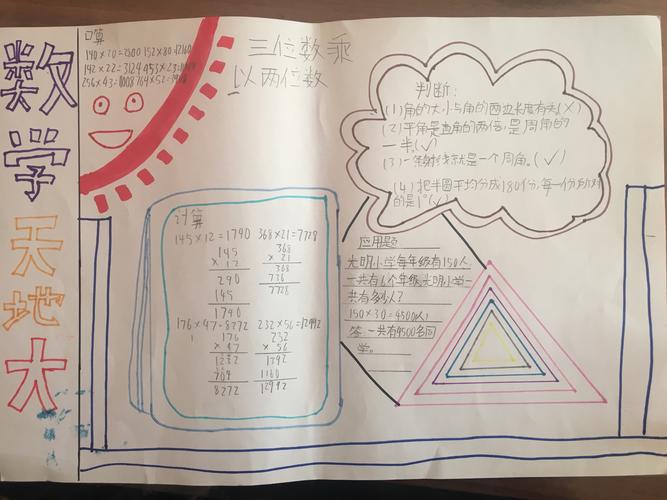 数学天地大
口算
140×20=2800 152×80=12160
142×22=3124 453×23=
256×43= 764×52=
三位数乘
以两位数
判断:
(1)角的大小与角的两边长度有关(×)
(2)平角是直角的两倍,是周角的
一半.(√)
(3)一条射线就是一个周角.(√)
(4)把半圆平均分成180份,每一份所对
的是1°(√)
计算
145×12=1790 368×21=7728
145
×12
290
145
1790
368
×21
368
736
7728
176×47=8272 232×56=12992
176
×47
1232
704
8272
232
×56
1392
1160
12992
应用题
光明小学每年级有150人,
一共有6个年级,光明小学一
共有多少人?
150×30=4500(人)
答:一共有4500名同
学。